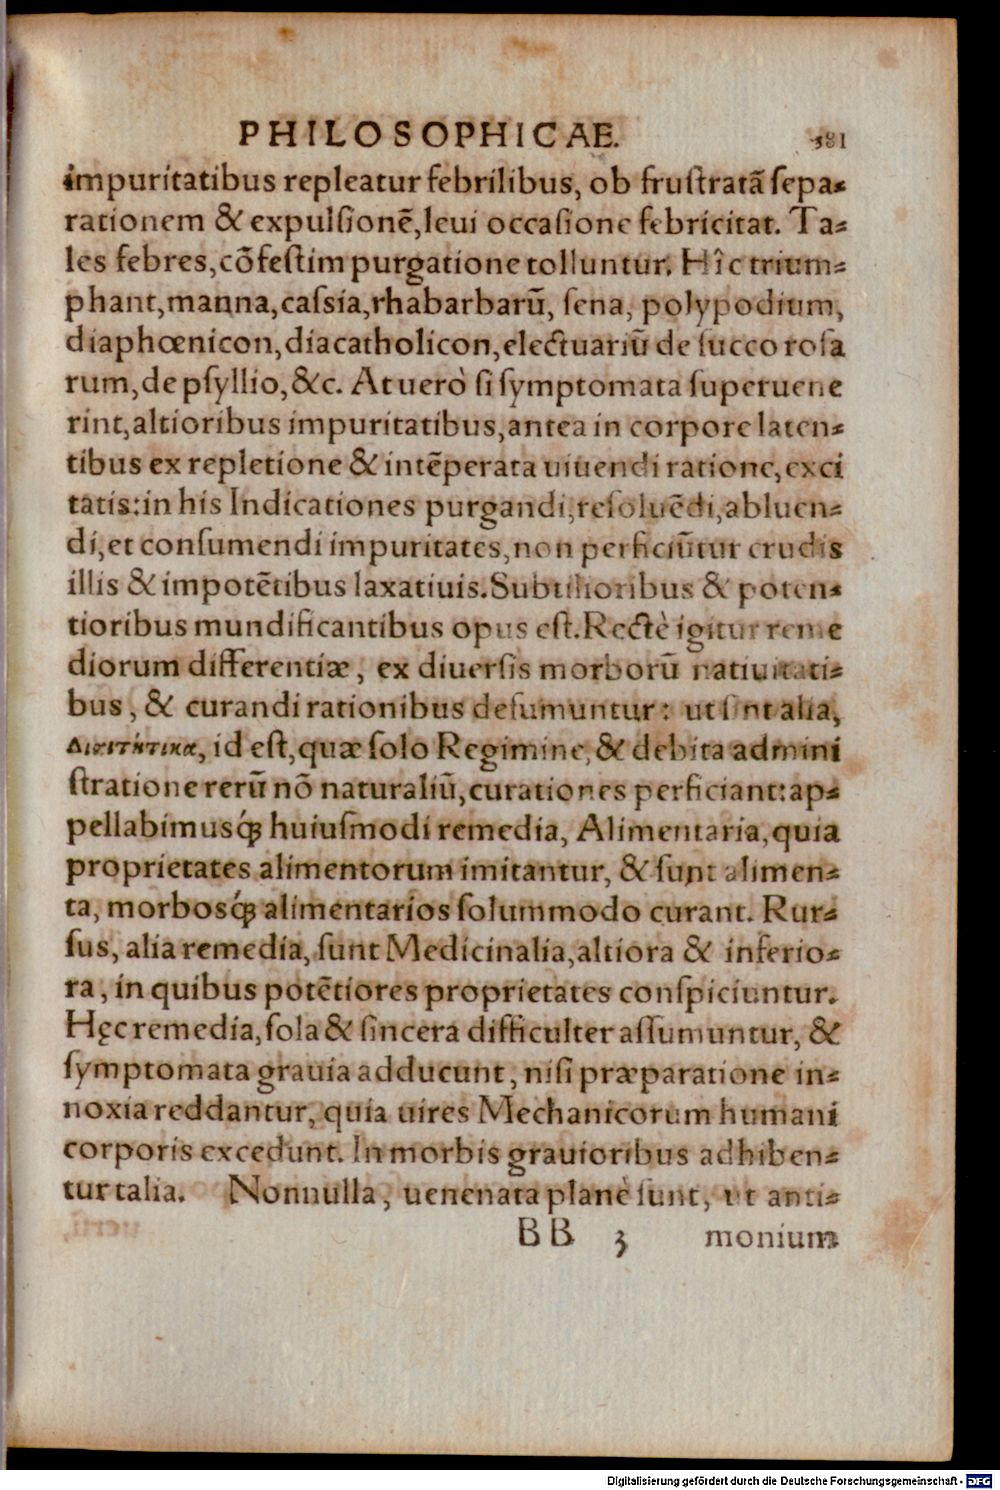 PHILOSOPHICAE. 381
impuritatibus repleatur febrilibus, ob frustratã sepa-
rationem & expulsionẽ, leui occasione febricitat. Ta-
les febres, cõfestim purgatione tolluntur. Hîc trium-
phant, manna, cassia, rhabarbarũ, sena, polypodium,
diaphœnicon, diacatholicon, electuariũ de succo rosa
rum, de psyllio, &c. At uerò si symptomata superuene
rint, altioribus impuritatibus, antea in corpore laten-
tibus ex repletione & intẽperata uiuendi ratione, exci
tatis: in his Indicationes purgandi, resoluẽdi, abluen-
di, et consumendi impuritates, non perficiũtur crudis
illis & impotẽtibus laxatiuis. Subtilioribus & poten-
tioribus mundificantibus opus est. Rectè igitur reme
diorum differentiæ, ex diuersis morborũ natiuitati-
bus, & curandi rationibus desumuntur: ut sint alia,
Διαιτητικα, id est, quæ solo Regimine, & debita admini
stratione rerũ nõ naturaliũ, curationes perficiant: ap-
pellabimusq́; huiusmodi remedia, Alimentaria, quia
proprietates alimentorum imitantur, & sunt alimen-
ta, morbosq́; alimentarios solummodo curant. Rur-
sus, alia remedia, sunt Medicinalia, altiora & inferio-
ra, in quibus potẽtiores proprietates conspiciuntur.
Hęc remedia, sola & sincera difficulter assumuntur, &
symptomata grauia adducunt, nisi præparatione in-
noxia reddantur, quia uires Mechanicorum humani
corporis excedunt. In morbis grauioribus adhiben-
tur talia. Nonnulla, uenenata planè sunt, ut anti-
BB 3 monium
Digitalisierung gefördert durch die Deutsche Forschungsgemeinschaft - DFG